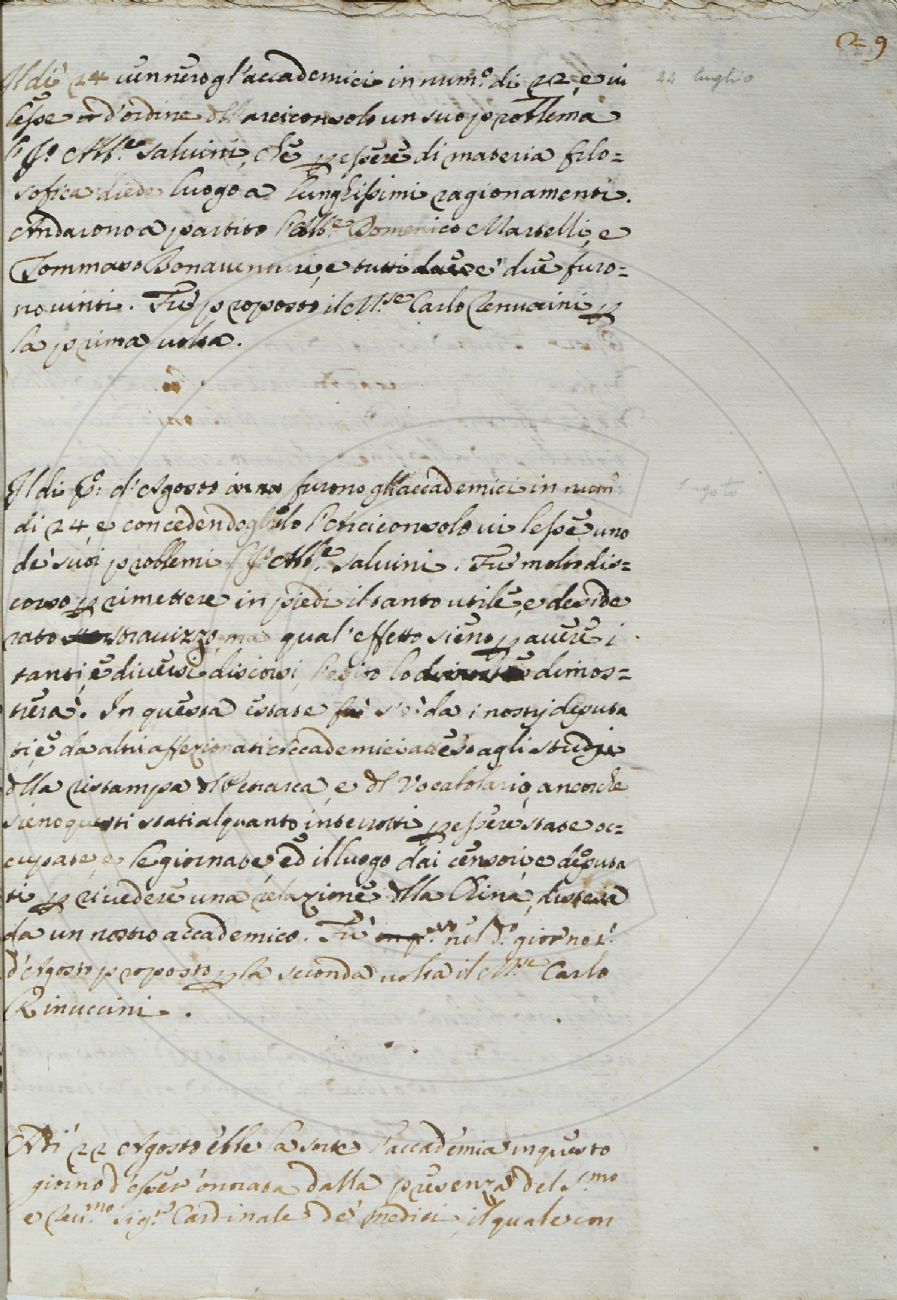 29
Il dì 24 vennero gl'accademici in num.º di 22 e vi
24 luglio
lesse d'ordine dll'arciconsolo un suo problema
l' Ab.e Salvini, che p essere di materia filo=
sofica diede luogo a lunghissimi ragionamenti.
Andarono a partito l'Ab.e Domenico Martelli, e
Tommaso Bonaventuri, e tutti e due furo=
no vinti. Fù proposto il M.se Carlo Renuccini p
la prima volta.
Il di P.º d'Agosto furono gli accademici in num.º
1 agosto
di 24 e concedendoglielo l'Arciconsolo vi lesse uno
de suoi problemi l' Ab.e Salvini. Fù molto dis=
corso p rimettere in piedi il tanto utile, e deside
rato stravizzo, ma qual'effetto sieno p avere i
tanti, e diversi discorsi, l'esito lo dimos=
trerà. In questa estate s'è da i nostri deputa
ti, e da altri affezionati Accademici atteso agli studi
dlla ristampa dl Petrarca, e dl Vocabolario, ancorche
sieno questi stati alquanto interrotti p essere state oc=
cupate, e le giornate, ed il luogo dai censori, e deputa
ti p rivedere una relazione dlla China, distesa
da un nostro accademico. Fù nel d.º giorno p.º
d'Agosto proposto p la seconda volta il M.se Carlo
Rinuccini.
Adi 22 Agosto ebbe la sorte l'accademia in questo
giorno d'esser onorata dalla presenza del S.mo
e Rev.mo Sig.r Cardinale de' Medici, il quale con